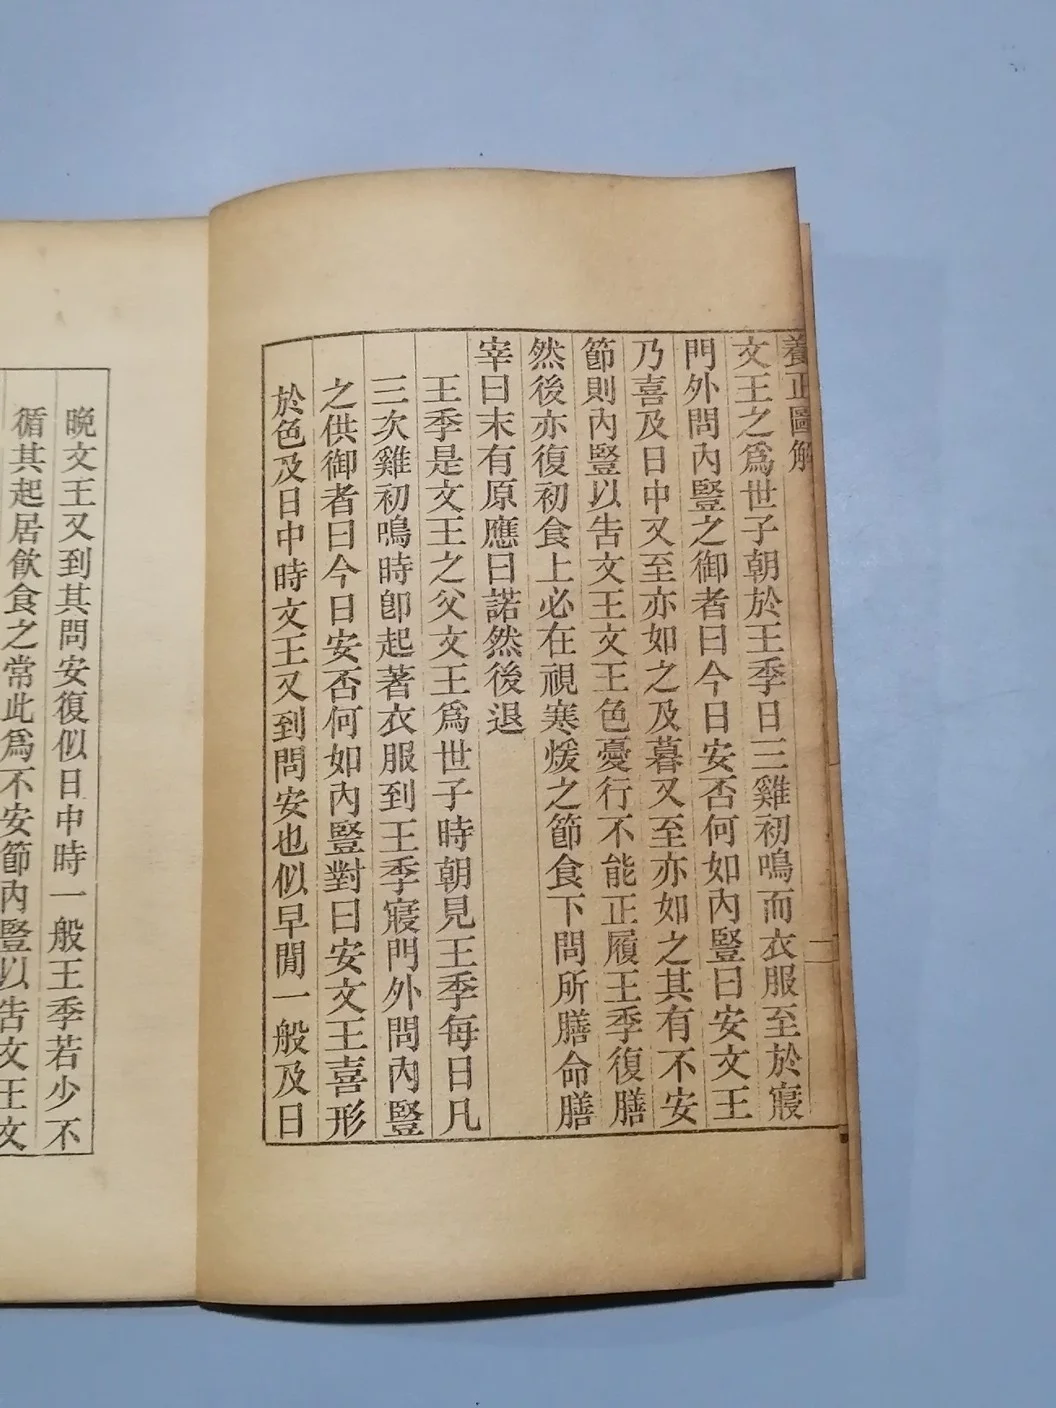 養正圖解
文王之爲世子朝於王季日三雞初鳴而衣服至於寢
門外問內豎之御者曰今日安否何如內豎曰安文王
乃喜及日中又至亦如之及暮又至亦如之其有不安
節則內豎以告文王文王色憂行不能正履王季復膳
然後亦復初食上必在視寒煖之節食下問所膳命膳
宰曰末有原應曰諾然後退
王季是文王之父文王爲世子時朝見王季每日凡
三次雞初鳴時卽起著衣服到王季寢門外問內豎
之供御者曰今日安否何如內豎對曰安文王喜形
於色及日中時文王又到問安也似早閒一般及日
晩文王又到其問安復似日中時一般王季若少不
循其起居飮食之常此爲不安節內豎以告文王文